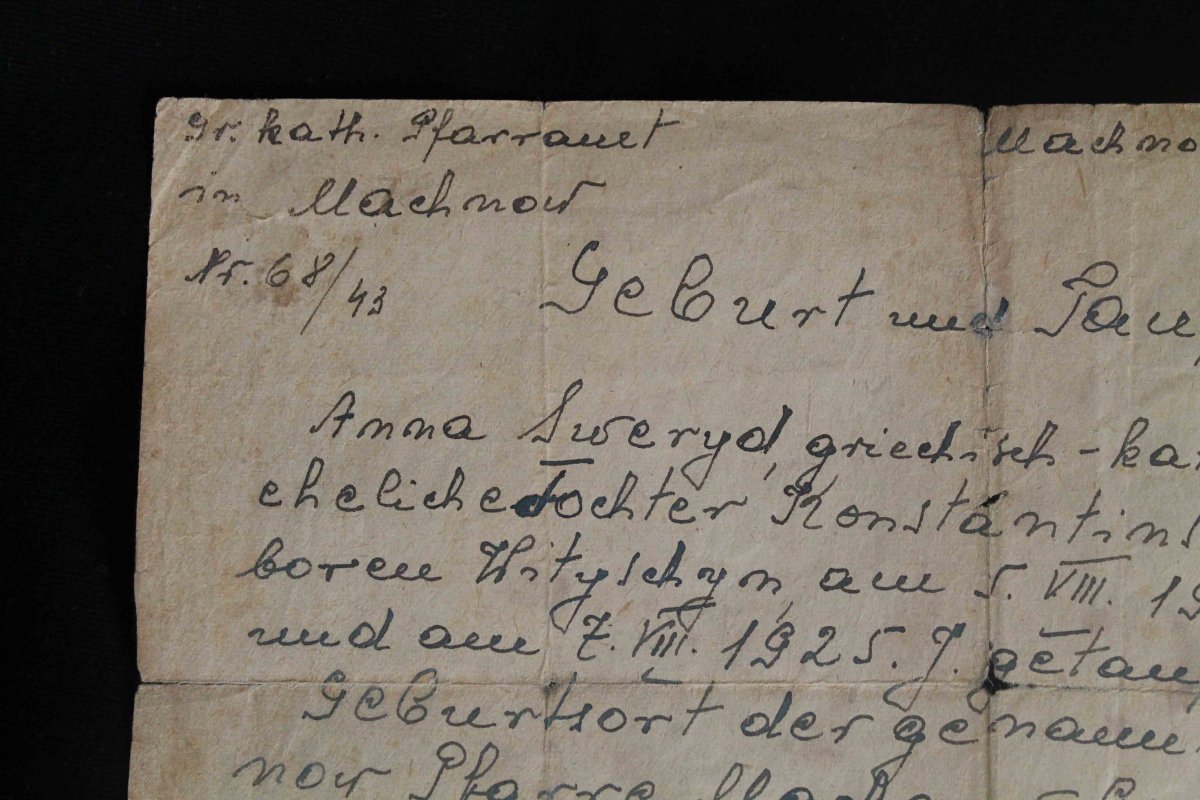 Gr. kath. Pfarramt Machno
in Machnow
Nr. 68/43
Geburt und Tau
Anna Sweryd, griechisch-ka
eheliche Tochter Konstantins
boren Hityschyn, am 5. VIII. 19
und am 7. VIII. 1925. J. getau
Geburtsort der genann
now Pfarre